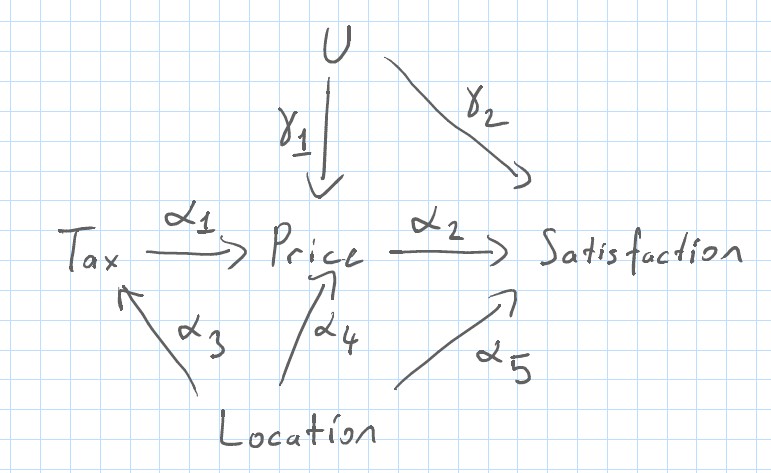 U
γ1 γ2
α1 α2
Tax Price Satisfaction
α3 α4 α5
Location